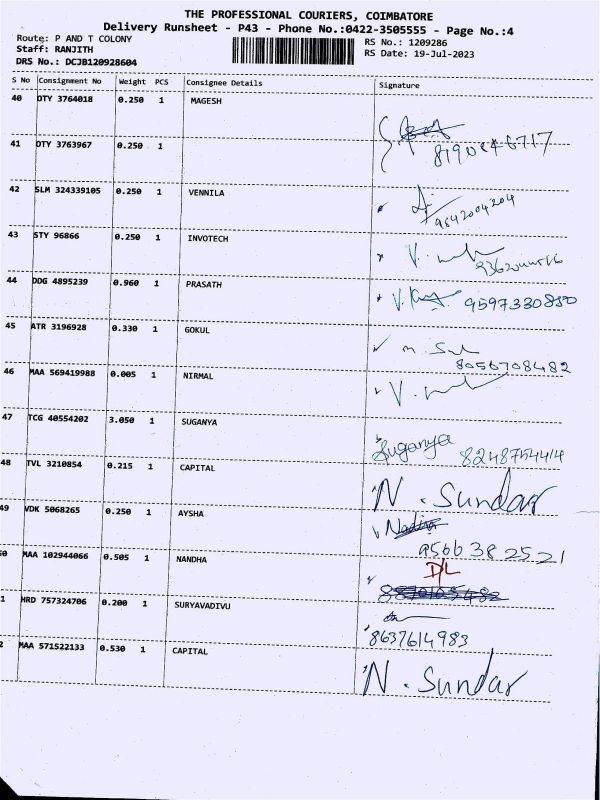 THE PROFESSIONAL COURIERS, COIMBATORE
Delivery Runsheet - P43 - Phone No.:0422-3505555 - Page No.:4
Route: P AND T COLONY
RS No.: 1209286
Staff: RANJITH
RS Date: 19-Jul-2023
DRS No.: DCJB120928604
S No Consignment No Weight PCS Consignee Details Signature
40 DTY 3764018 0.250 1 MAGESH
41 DTY 3763967 0.250 1
42 SLM 324339105 0.250 1 VENNILA
9842004204
43 STY 96866 0.250 1 INVOTECH
44 DDG 4895239 0.960 1 PRASATH
9597330850
45 ATR 3196928 0.330 1 GOKUL
8056708482
46 MAA 569419988 0.005 1 NIRMAL
47 TCG 40554202 3.050 1 SUGANYA
Suganya 8248754414
48 TVL 3210854 0.215 1 CAPITAL
N. Sundar
49 VDK 5068265 0.250 1 AYSHA
9566 38 2521
50 MAA 102944066 0.505 1 NANDHA
D/L
1 HRD 757324706 0.200 1 SURYAVADIVU
8637614983
2 MAA 571522133 0.530 1 CAPITAL
N. Sundar